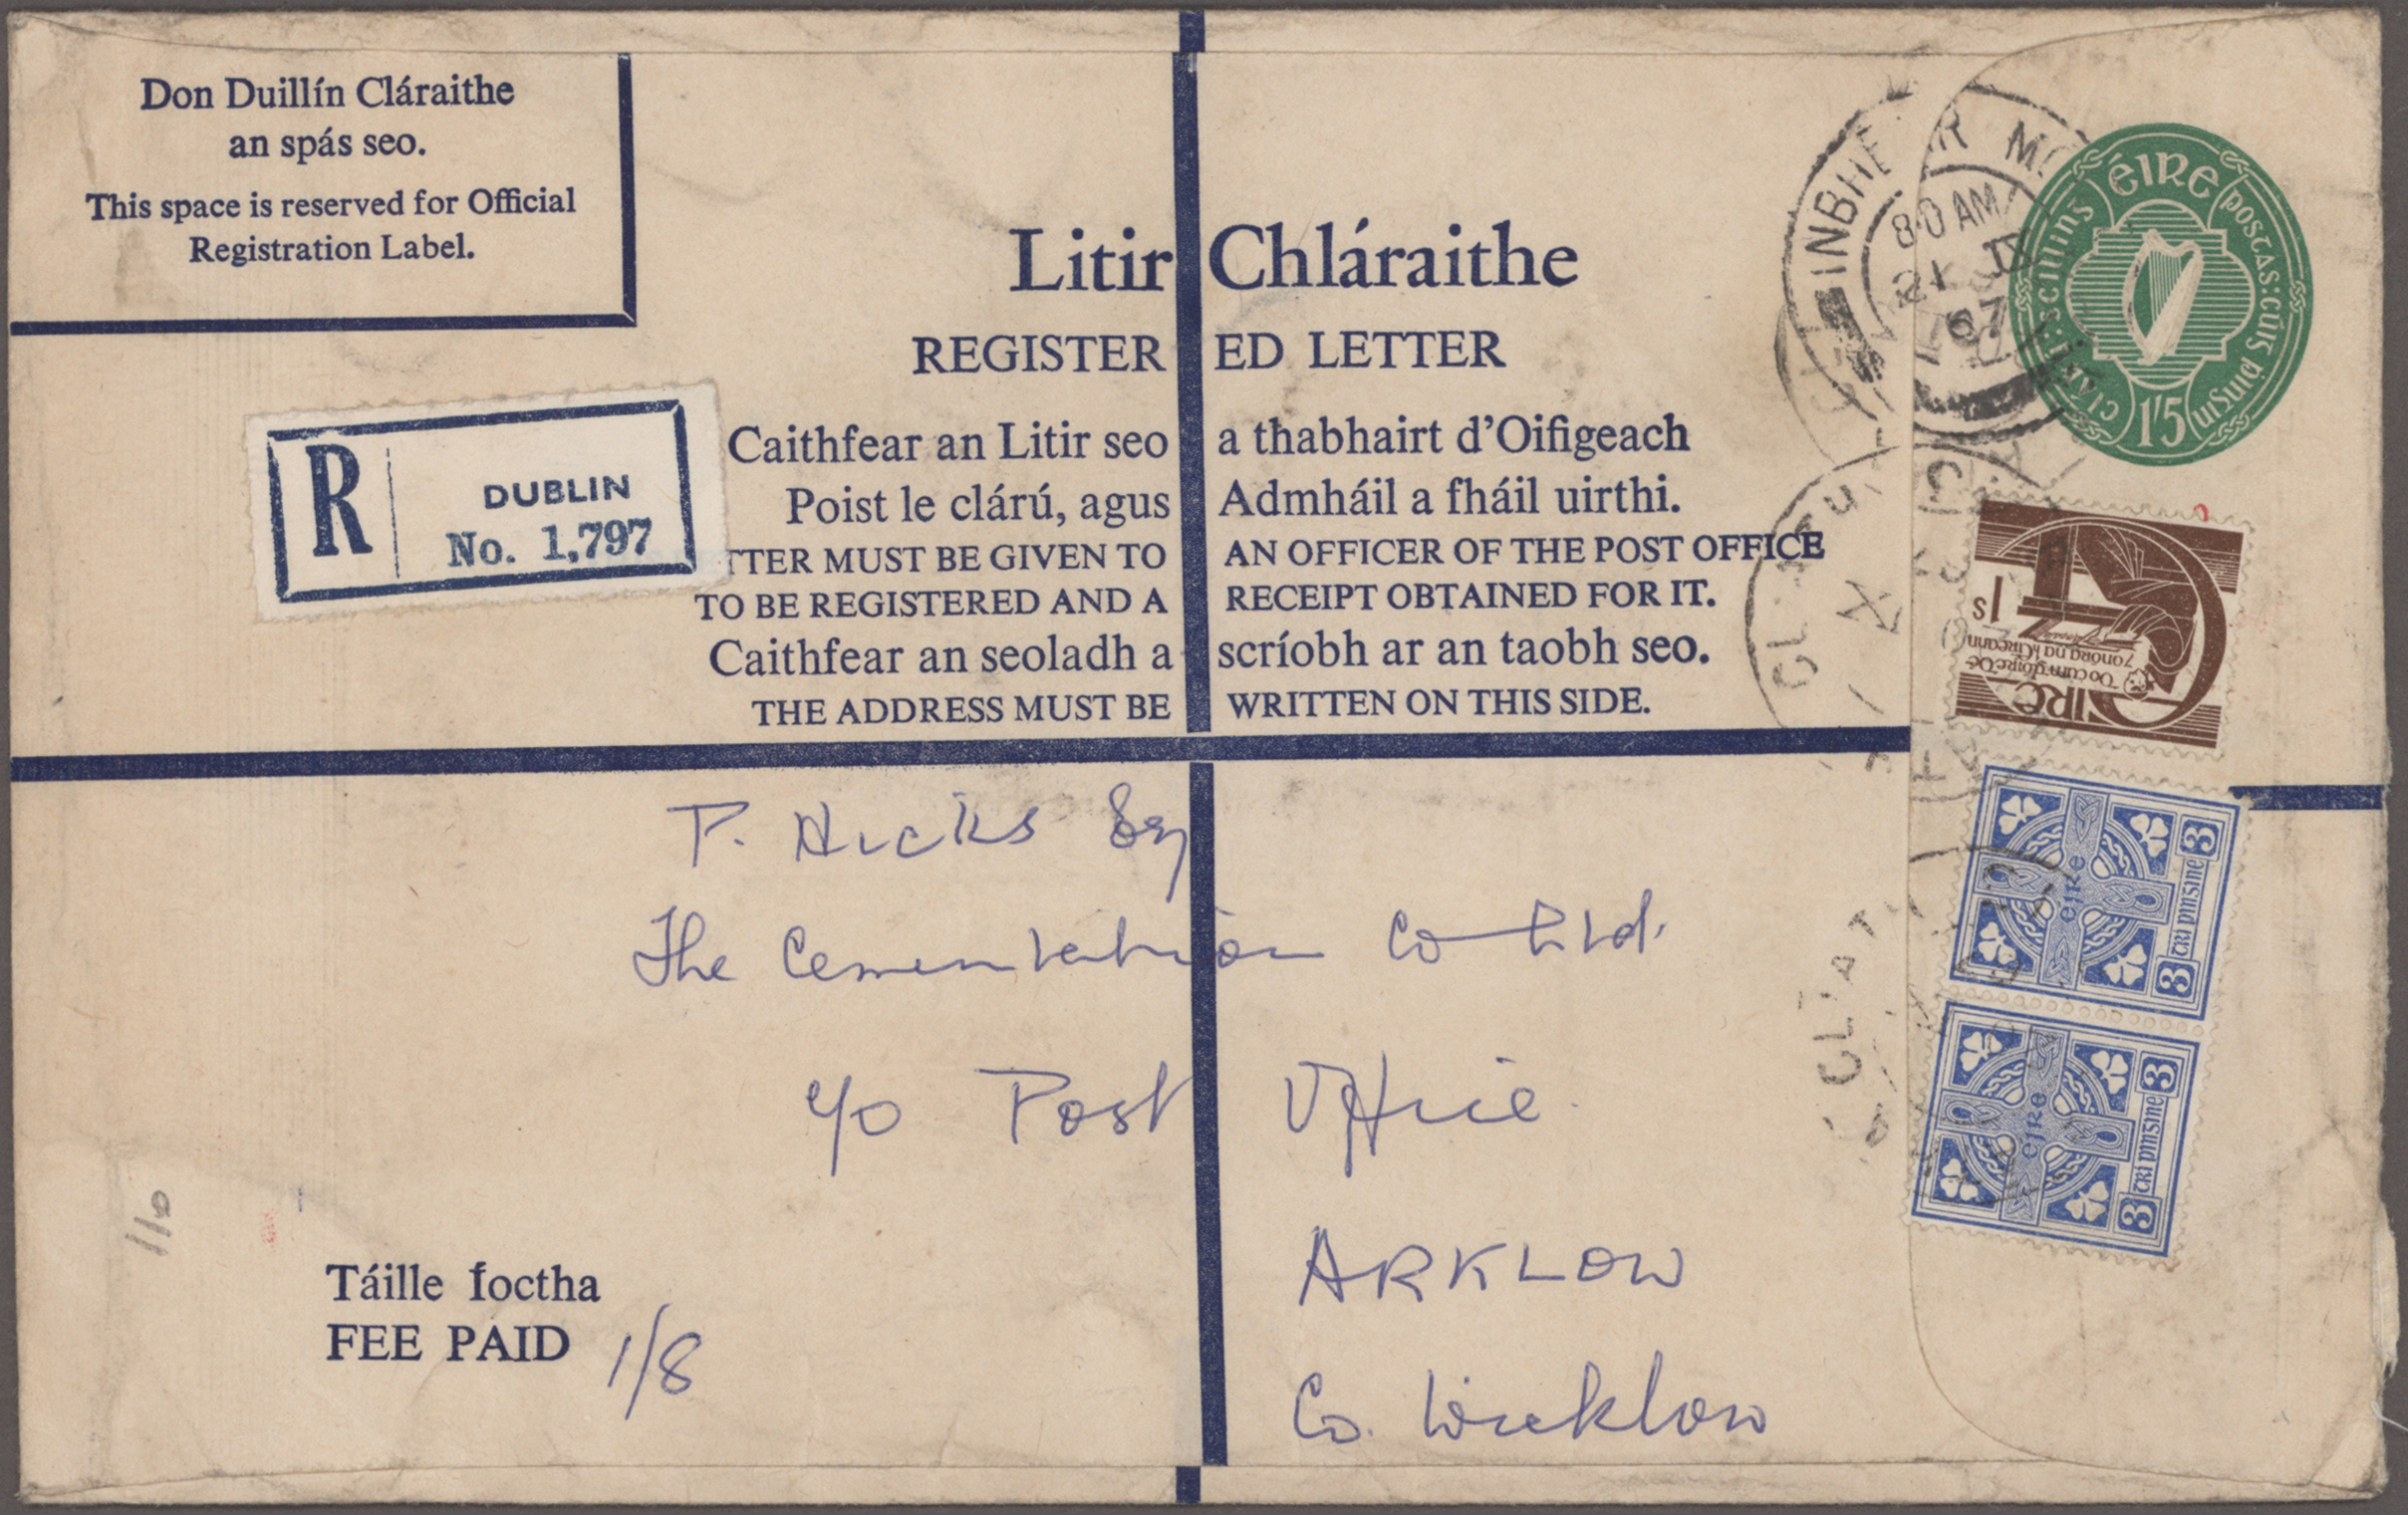 Don Duillín Cláraithe
an spás seo.
This space is reserved for Official
Registration Label.
Litir Chláraithe
REGISTERED LETTER
Caithfear an Litir seo a thabhairt d'Oifigeach
Poist le clárú, agus Admháil a fháil uirthi.
TTER MUST BE GIVEN TO AN OFFICER OF THE POST OFFICE
TO BE REGISTERED AND A RECEIPT OBTAINED FOR IT.
Caithfear an seoladh a scríobh ar an taobh seo.
THE ADDRESS MUST BE WRITTEN ON THIS SIDE.
R
DUBLIN
No. 1,797
INBHE R M
8.0 AM
67
ÉIRE
postas: cúig pingin
scilling
1'5
1s
Do cum glóire Dé
7 onóra na hÉireann
CLIAT
éire
3 trí pinsine 3
éire
3 trí pinsine 3
P. Hicks Esq
The Cementation Co Ltd.
c/o Post Office
ARKLOW
Co. Wicklow
Táille íoctha
FEE PAID 1/8